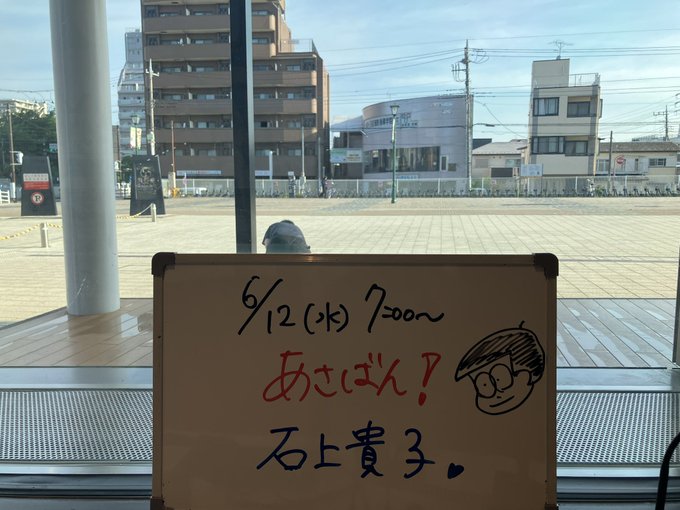 6/12(水) 7:00～
あさばん!
石上貴子